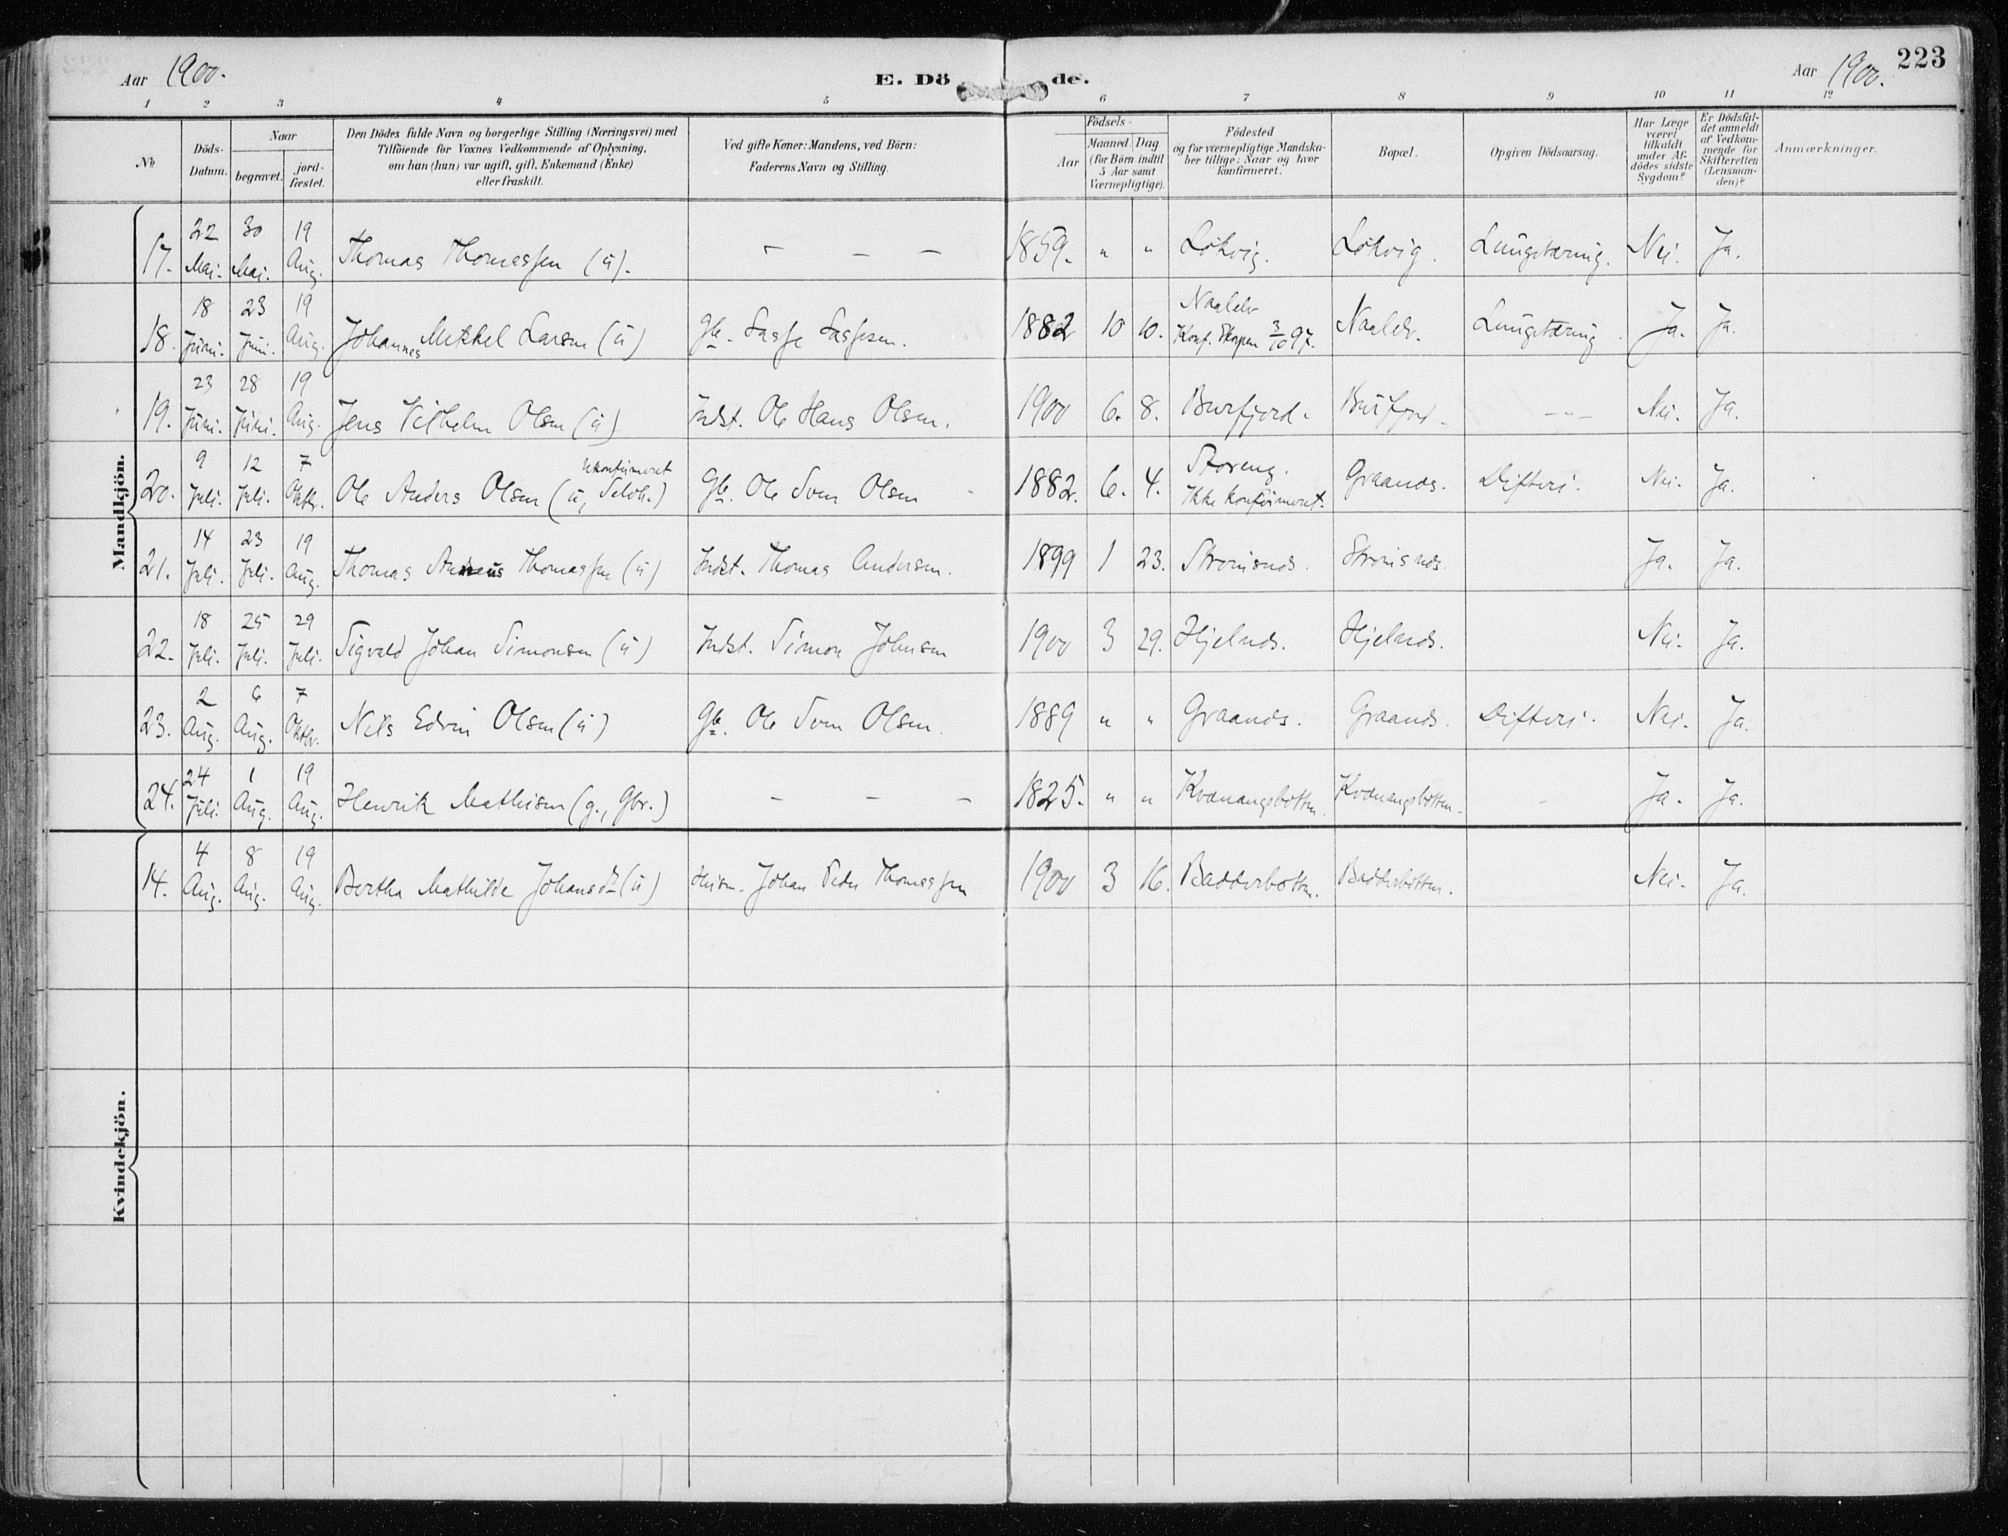 Aar 1900.
E. Dö de.
Aar 1900.
223
1 2 3 4 5 6 7 8 9 10 11 12
No
Döds-
Datum.
Naar
begravet.
jord-
fæstet.
Den Dödes fulde Navn og borgerlige Stilling (Næringsvei) med
Tilföiende for Voxnes Vedkommende af Oplysning,
om han (hun) var ugift, gift, Enkemand (Enke)
eller fraskilt.
Ved gifte Koner: Mandens, ved Börn:
Faderens Navn og Stilling.
Födsels-
Aar
Maaned. Dag
(for Börn indtil
5 Aar samt
Værnepligtige).
Födested
og for værnepligtige Mandska-
ber tillige: Naar og hvor
konfirmeret.
Bopæl.
Opgiven Dödsaarsag.
Har Læge
været
tilkaldt
under Af-
dødes sidste
Sygdom?
Er Dödsfal-
det anmeldt
af Vedkom-
mende for
Skifteretten
(Lensman-
den)?
Anmærkninger.
Mandkjön.
17. 22 Mai. 30 Mai. 19 Aug. Thomas Thomassen (u). — — — 1859. " " Løkvig. Løkvig. Lungetæring. Nei. Ja.
18. 18 Juni. 23 Juni. 19 Aug. Johannes Mikkel Larsen (u) Gb. 1882 10 10. Naalelv
Konf. Skorpen 3/10 97. Naalelv. Lungetæring. Ja. Ja.
19. 23 Juni. 28 Juni. 19 Aug. Jens Vilhelm Olsen (u) Indst. Ole Hans Olsen. 1900 6. 8. Burfjord. Burfjord. — " — Nei. Ja.
20. 9 Juli. 12 Juli. 7 Oktbr. Ole Anders Olsen (u, ukonfirmeret) Gb. Ole Sven Olsen 1882. 6. 4. Storeng.
Ikke konfirmeret. Graanæs. Difteri. Nei. Ja.
21. 14 Juli. 23 Juli. 19 Aug. Thomas Thomassen (u) Indst. Thomas Andersen. 1899 1 23. Strømsnæs. Strømsnæs. Ja. Ja.
22. 18 Juli. 25 Juli. 29 Juli. Sigvald Johan Simonsen (u) Indst. Simon Johnsen 1900 3 29. Hjelnæs. Hjelnæs. Nei. Ja.
23. 2 Aug. 6 Aug. 7 Oktbr. Nils Edvin Olsen (u) Gb. Ole Sven Olsen. 1889 " " Graanæs. Graanæs. Difteri. Nei. Ja.
24. 24 Juli. 1 Aug. 19 Aug. Henrik Mathisen (g., Gbr.) — — — 1825. " " Kvænangsbotten. Kvænangsbotten. Ja. Ja.
Kvindekjön.
14. 4 Aug. 8 Aug. 19 Aug. Bertha Mathilde Johansdr (u) Johan Peder Thomassen 1900 3 16. Badderbotten. Badderbotten. Nei. Ja.